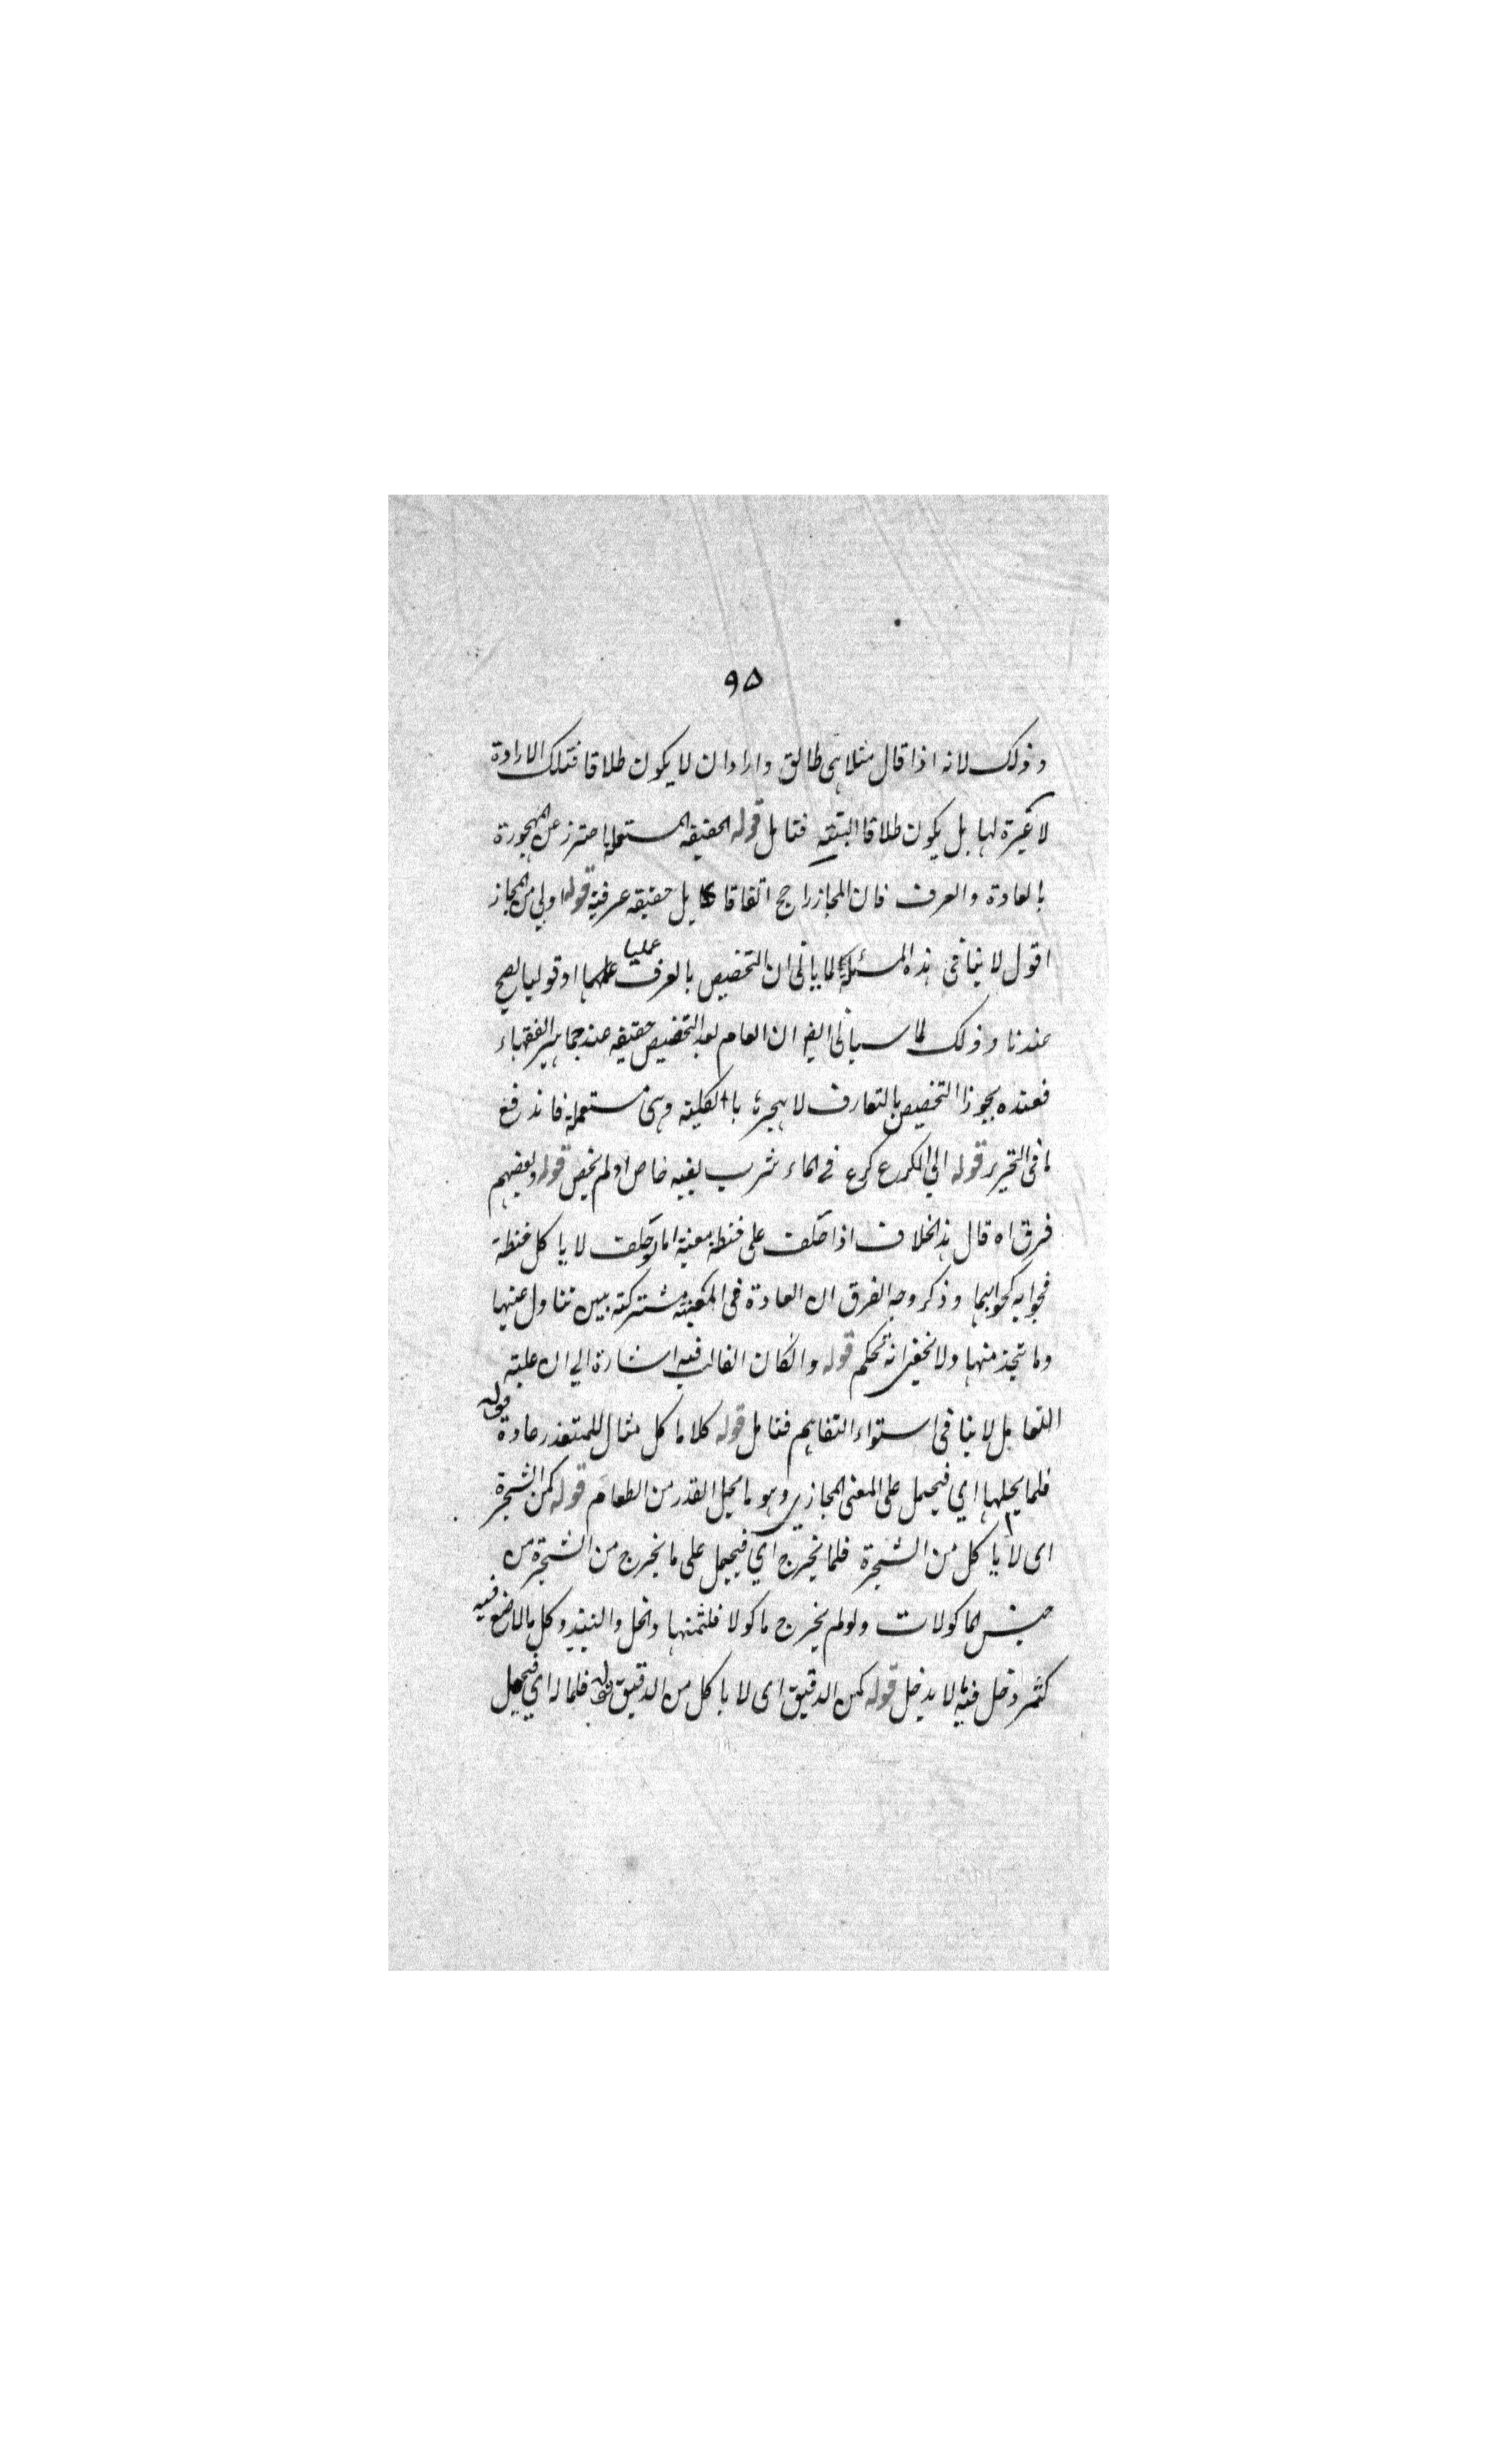 ٩٥
وذلك لانه اذا قال مثلا هي طالق وارادان لا يكون طلاقا فتلك الارادة
لا عبرة لها بل يكون طلاقا البتة فتامل قوله الحقيقه المستعملة احترز عن المهجورة
بالعادة والعرف فان المجاز راجح اتفاقا بل حقيقه عرفية قوله اولى من المجاز
اقول لا ينافي هذه المسئلة لما ياتى ان التخصيص بالعرف عمليا اوقوليا يصح
عندنا وذلك لما سياتى ايضا ان العام بعد التخصيص حقيقه عند جماهير الفقهاء
فعنده يجوز التخصيص بالتعارف لا يهجره بالكلية وهي مستعملة فاندفع
ما في التحرير قوله الى الكرع كرع في الماء شرب بفيه خاص اولم يخص قوله وبعضهم
فرق اه قال هذا الخلاف اذا حلف على حنطة معينة اما لو حلف لا ياكل حنطة
فجوابه كجوابهما وذكر وجه الفرق ان العادة فى المعينة مشتركة بين تناول عينها
وما يتخذ منها ولا يخفى انه تحكم قوله وانكان الغالب فيه اشارة الى ان غلبته
التعامل لا ينافى استواء التفاهم فتامل قوله كلا ياكل مثال للمتعذر عادة قوله
فلما يحلها اي فيحمل على المعنى المجازي وهو ما يحل القدر من الطعام قوله كمن الشجرة
اى لا ياكل من الشجرة فلما يخرج اي فيحمل على ما يخرج من الشجرة من
جنس الماكولات ولو لم يخرج ماكولا فلثمنها والخل والنبيذ وكل مالا صنع فيه
كثمر دخل فيه مالا يدخل قوله كمن الدقيق اى لا ياكل من الدقيق قوله فلماله اي فيحمل